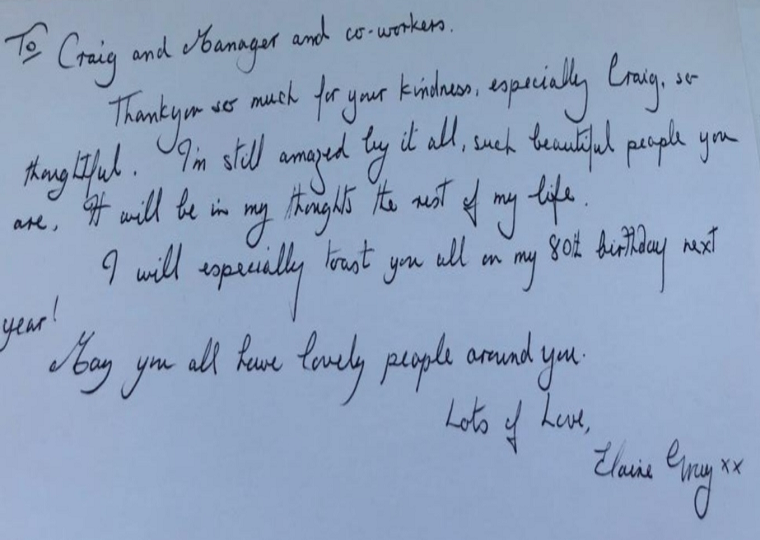 To Craig and Manager and co-workers.
Thankyou so much for your kindness, especially Craig, so
thoughtful. I'm still amazed by it all, such beautiful people you
are. It will be in my thoughts the rest of my life.
I will especially toast you all on my 80th birthday next
year!
May you all have lovely people around you.
Lots of Love,
Elaine Gray xx